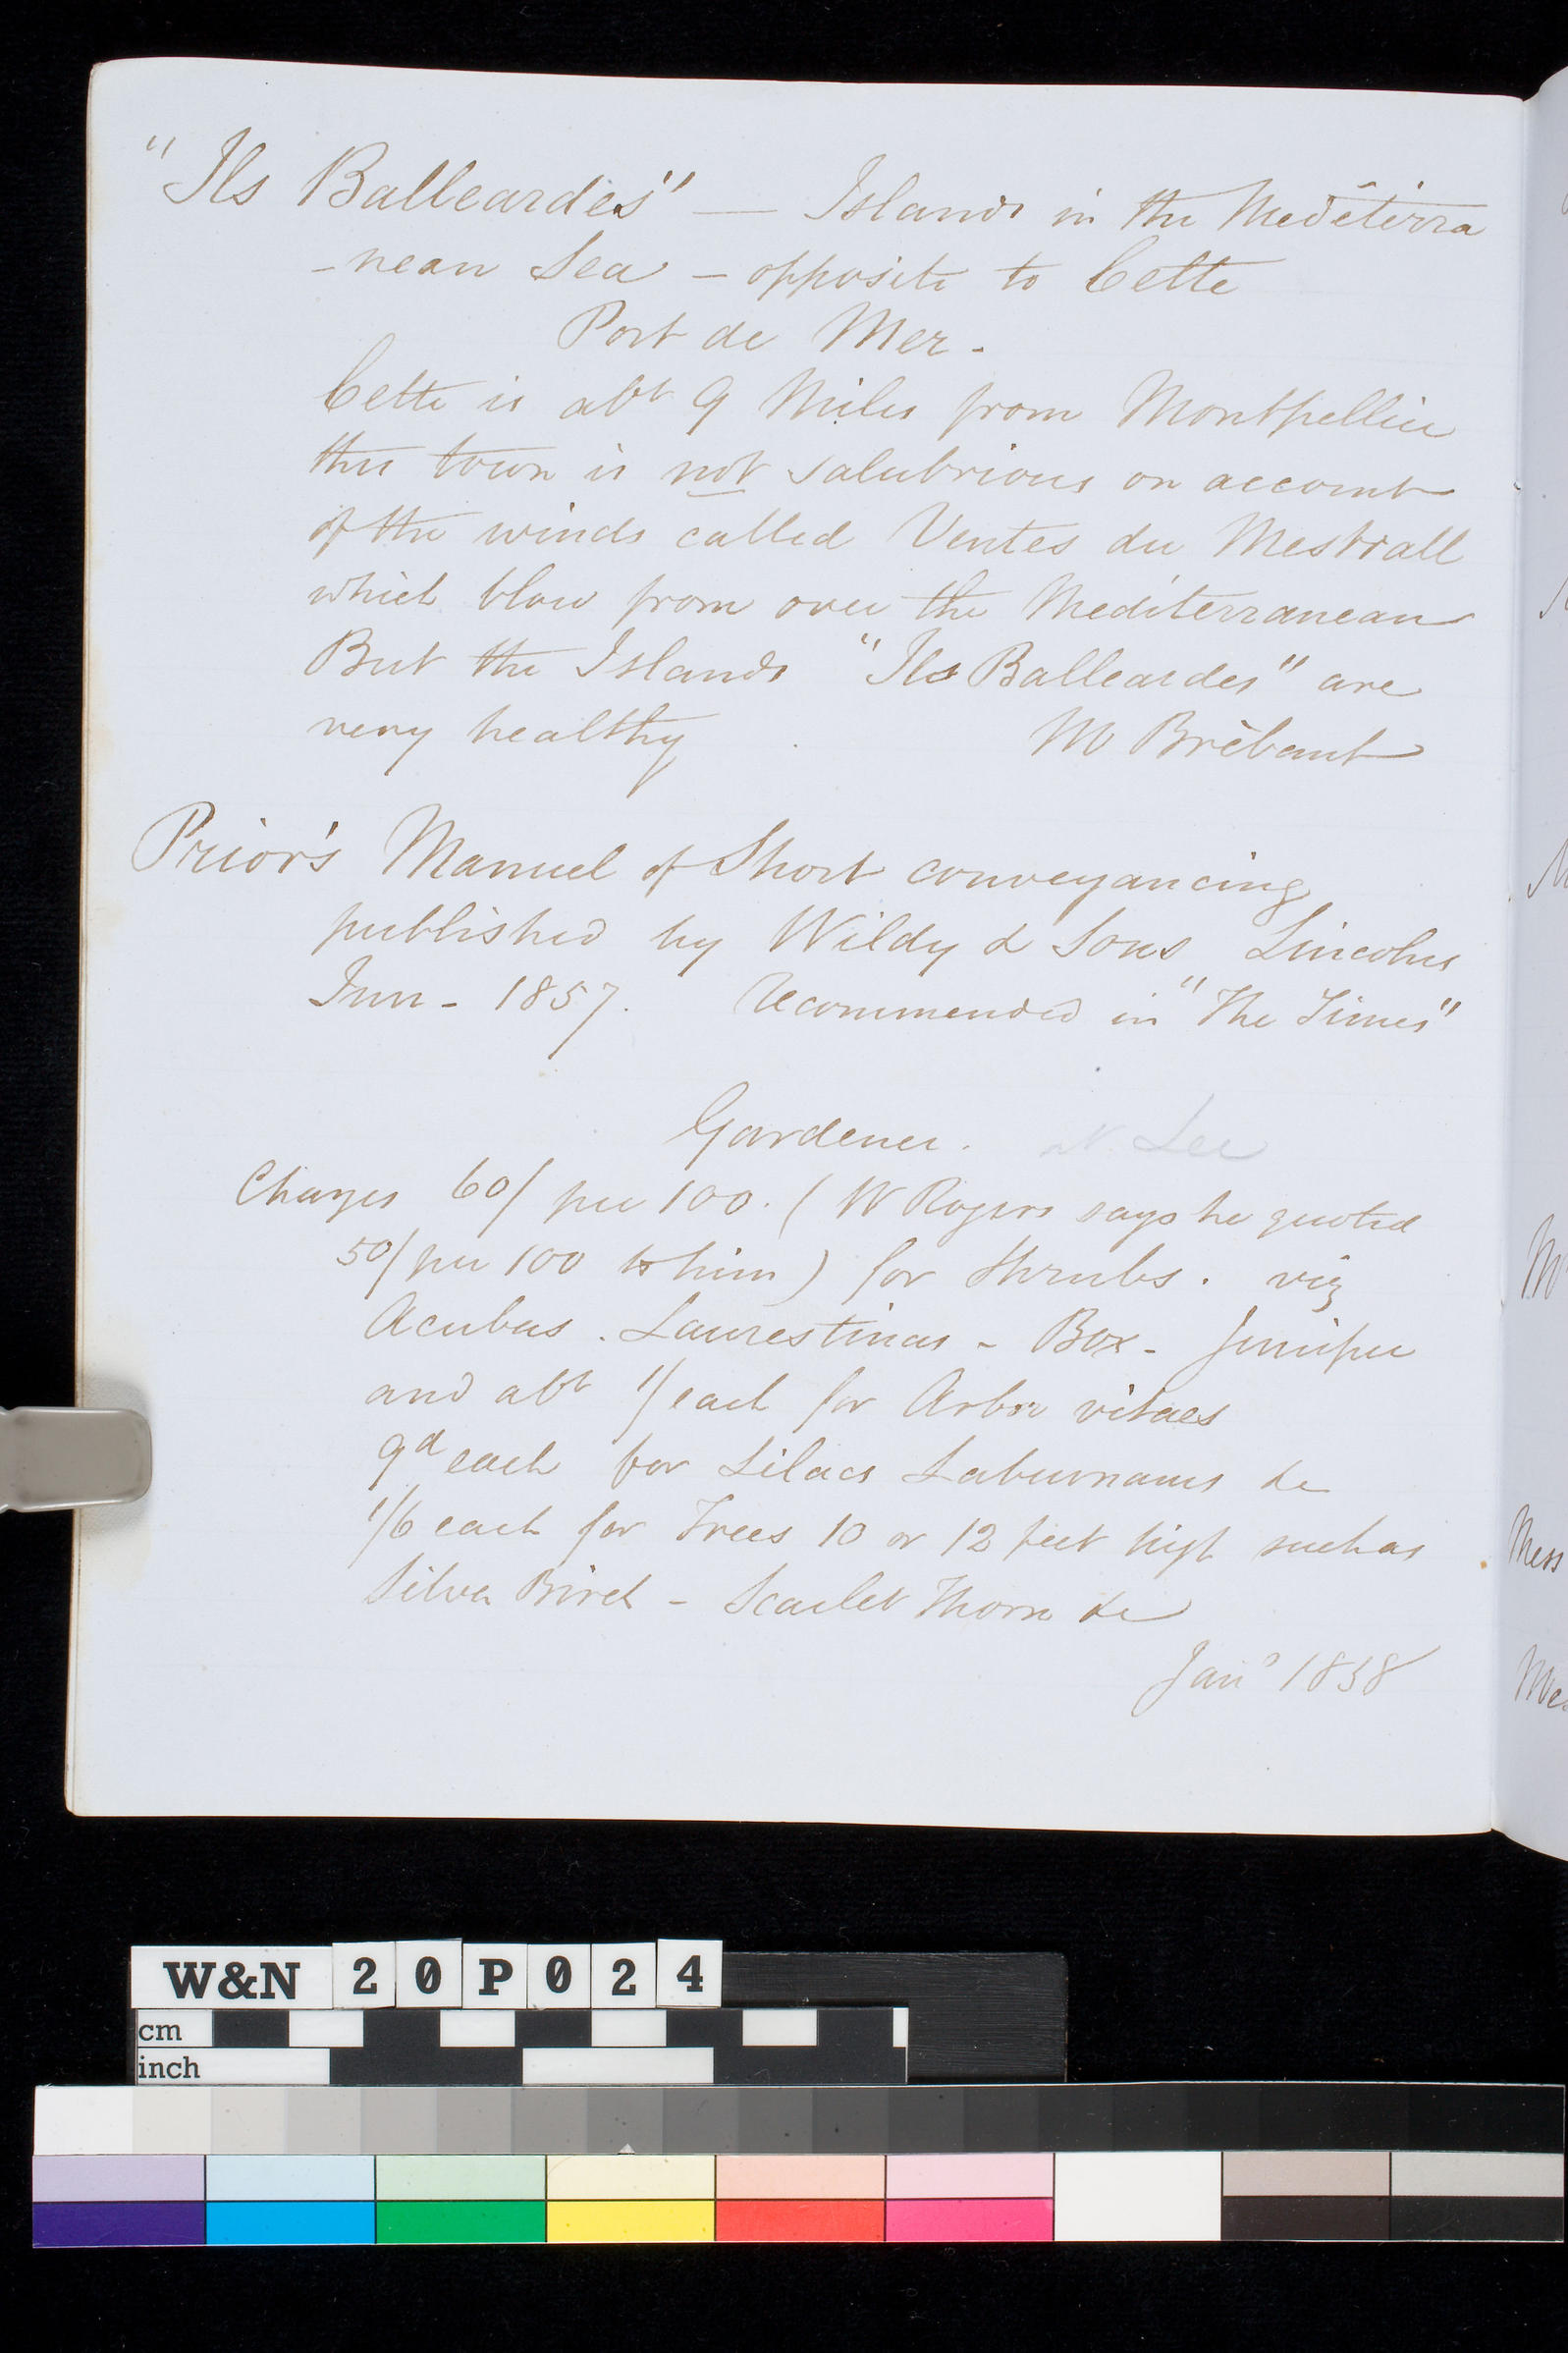 "Ils Balleardes" — Islands in the Mediterra
-nean Sea - opposite to Cette
Port de Mer.
Cette is abt 9 Miles from Montpellier
this town is not salubrious on account
of the winds called Ventes du Mestrall
which blow from over the Mediterranean
But the Islands "Ils Balleardes" are
very healthy M Brèbant
Prior's Manuel of Short conveyancing
published by Wildy & Sons Lincolns
Inn - 1857. Recommended in "The Times"
Gardener. Lee
Charges 60/ per 100. ( W Rogers says he quoted
50/ per 100 to him ) for Shrubs. viz
Acubas. Laurestinas - Box - Juniper
and abt 1/ each for Arbor vitaes
9d each for Lilacs Laburnams &c
1/6 each for Trees 10 or 12 feet high such as
Silver Birch - Scarlet Thorn &c
Jany 1858
W&N 20P024
cm
inch